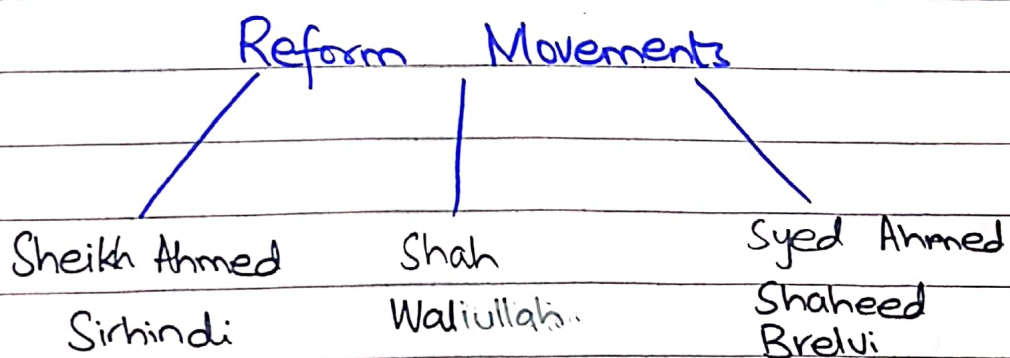 Reform Movements
Sheikh Ahmed
Sirhindi
Shah
Waliullah..
Syed Ahmed
Shaheed
Brelvi